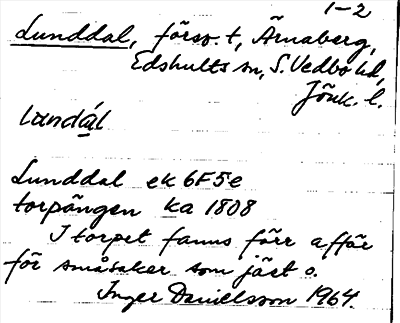 1-2
Lunddal, försv. t, Ärnaberg,
Edshults sn, S. Vedbo hd,
Jönk. l.
landál
Lunddal ek 6F5e
torpängen ka 1808
I torpet fanns förr affär
för småsaker som jäst o.
Inger Danielsson 1964.